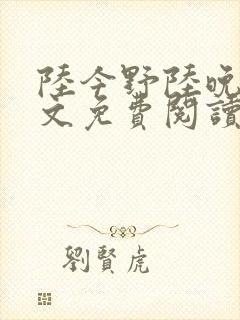 陸今野陸晚
文免費閱讀
劉賢虎